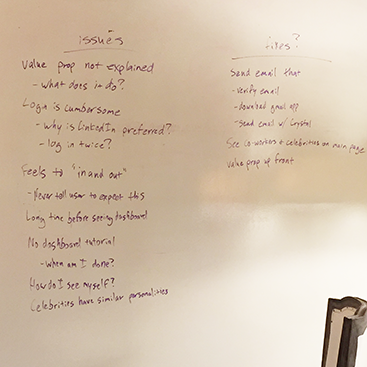 issues
Value prop not explained
- what does it do?
Login is cumbersome
- why is LinkedIn preferred?
- log in twice?
Feels to "in and out"
- Never tell user to expect this
Long time before seeing dashboard
No dashboard tutorial
- when am I done?
How do I see myself?
Celebrities have similar personalities
fixes?
Send email that
- verify email
- download gmail app
- send email w/ Crystal
See co-workers + celebrities on main page
Value prop up front